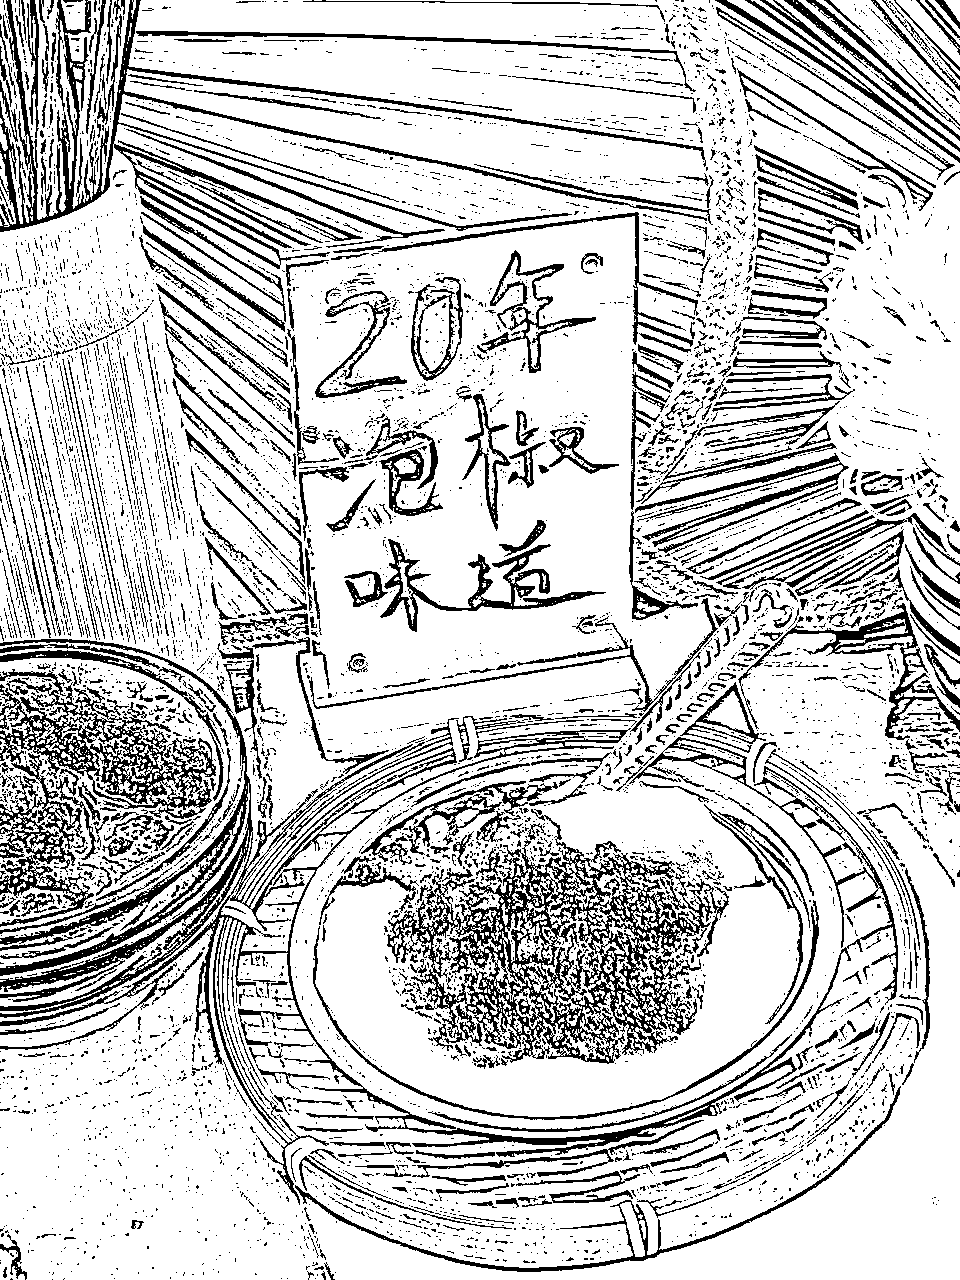 20年
泡椒
味道